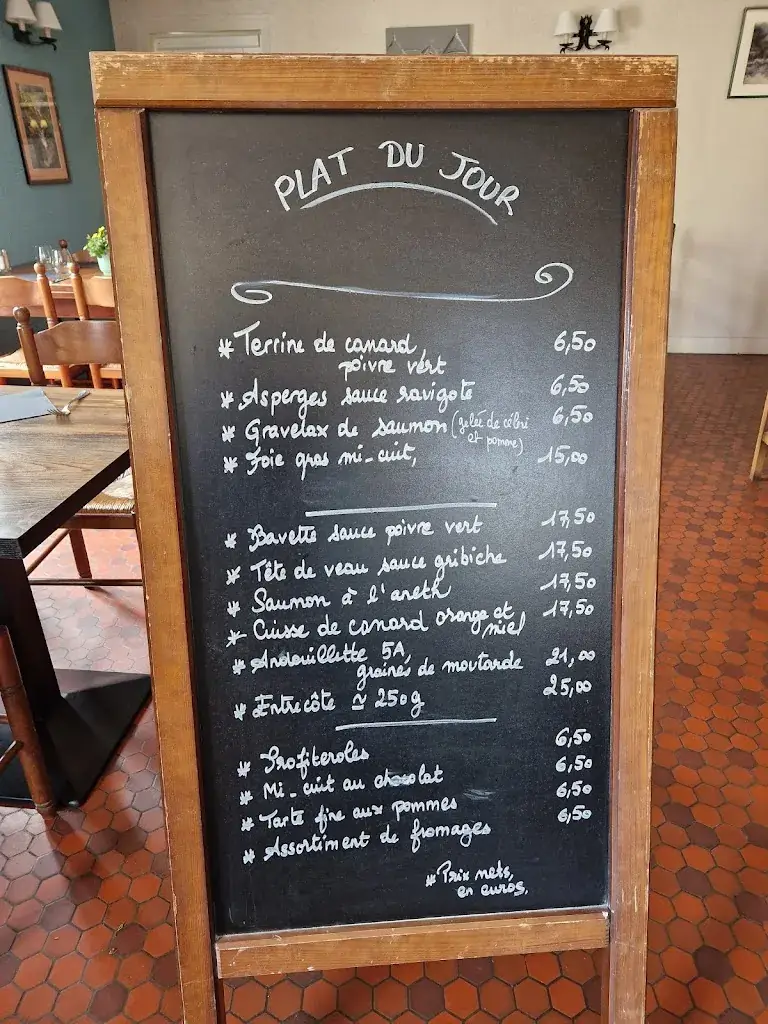 PLAT DU JOUR
* Terrine de canard, 6,50
poivre vert
* Asperges sauce ravigote 6,50
* Gravelax de saumon (gelée de céleri 6,50
et pomme)
* Foie gras mi-cuit, 15,00
* Bavette sauce poivre vert 17,50
* Tête de veau sauce gribiche 17,50
* Saumon à l'aneth 17,50
* Cuisse de canard orange et 17,50
miel
* Andouillette 5A,
graines de moutarde 21,00
* Entrecôte ≃ 250g 25,00
* Profiteroles 6,50
* Mi-cuit au chocolat 6,50
* Tarte fine aux pommes 6,50
* Assortiment de fromages 6,50
* Prix nets,
en euros.